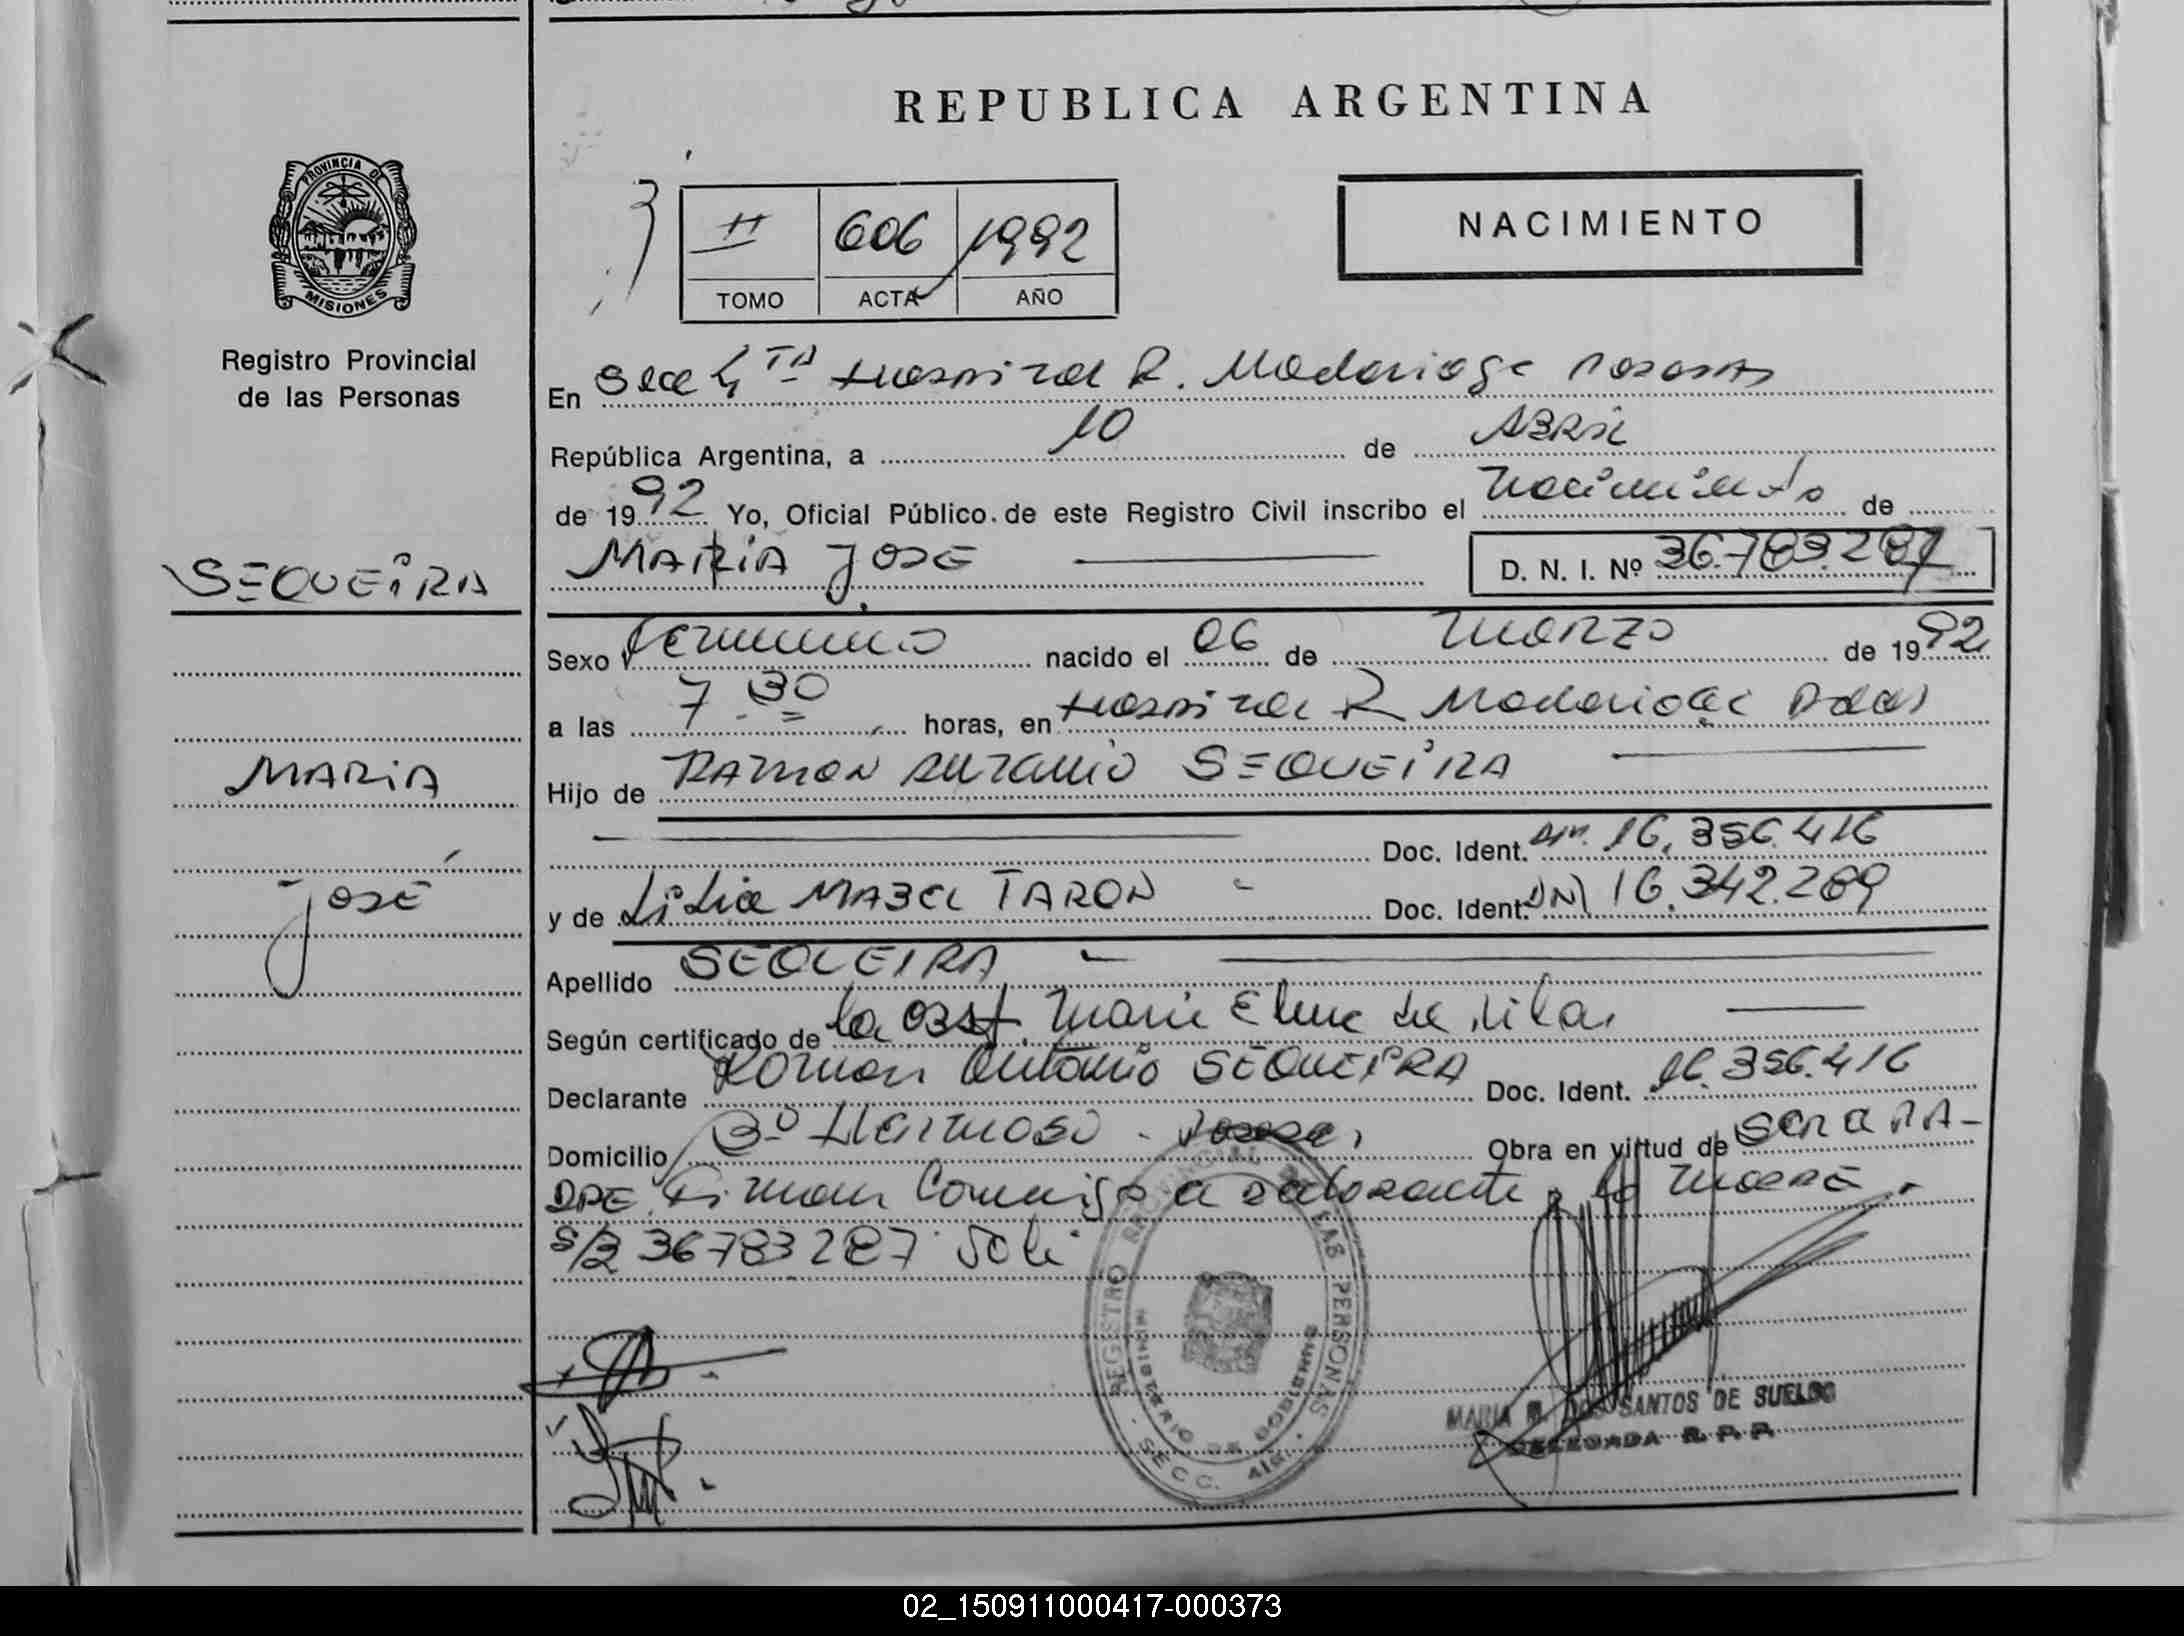 REPUBLICA ARGENTINA
PROVINCIA DE
MISIONES
Registro Provincial
de las Personas
II 606 1992
TOMO ACTA AÑO
NACIMIENTO
En Secc 4TA Hospital R. Madariaga Posadas
República Argentina, a 10 de ABRIL
de 1992 Yo, Oficial Público de este Registro Civil inscribo el Nacimiento de
MARIA JOSE D. N. I. Nº 36.783.287
SEQUEIRA
MARIA
JOSÉ
Sexo Femenino nacido el 06 de MARZO de 1992
a las 7.30 horas, en Hospital R Madariaga Pdas
Hijo de RAMON ANTONIO SEQUEIRA
Doc. Ident. DNI. 16.356.416
y de Lidia MABEL TARON Doc. Ident. DNI 16.342.289
Apellido SEQUEIRA
Según certificado de la Obst. Maria Elena de
Declarante Roman Antonio SEQUEIRA Doc. Ident. 16.356.416
Domicilio Bº Hermoso - Posadas Obra en virtud de SER EL PA-
DRE. Firman Conmigo el declarante y la MADRE.
S/B 36783287 Vale
REGISTRO PROVINCIAL DE LAS PERSONAS
MINISTERIO DE GOBIERNO
SECC. 4ta.
MARIA R. DOS SANTOS DE SUELDO
DELEGADA R. P. P.
02_150911000417-000373